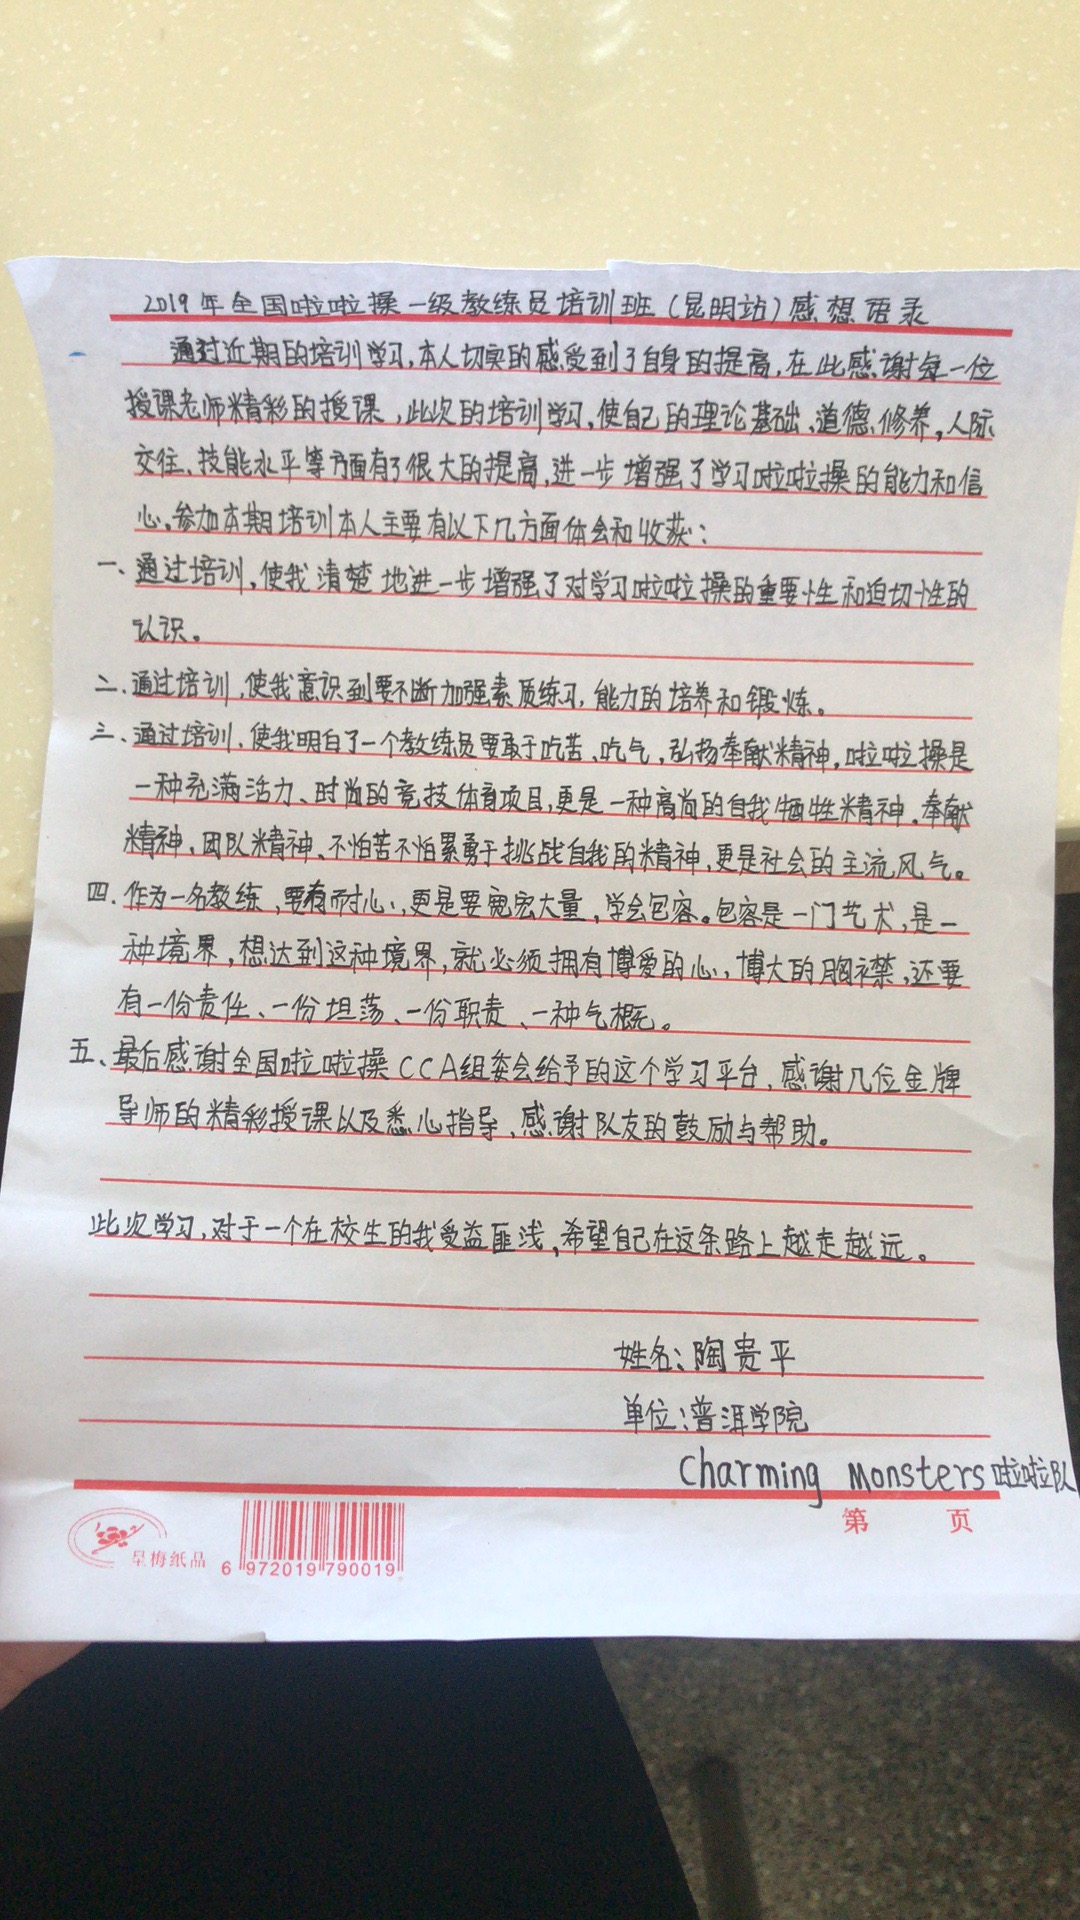 2019年全国啦啦操一级教练员培训班（昆明站）感想语录
通过近期的培训学习,本人切实的感受到了自身的提高,在此感谢每一位
授课老师精彩的授课,此次的培训学习,使自己的理论基础、道德、修养,人际
交往、技能水平等方面有了很大的提高,进一步增强了学习啦啦操的能力和信
心。参加本期培训本人主要有以下几方面体会和收获:
一、通过培训,使我清楚地进一步增强了对学习啦啦操的重要性和迫切性的
认识。
二、通过培训,使我意识到要不断加强素质练习,能力的培养和锻炼。
三、通过培训,使我明白了一个教练员要敢于吃苦、吃气,弘扬奉献精神,啦啦操是
一种充满活力、时尚的竞技体育项目,更是一种高尚的自我牺牲精神、奉献
精神、团队精神、不怕苦不怕累勇于挑战自我的精神,更是社会的主流风气。
四、作为一名教练,要有耐心,更是要宽宏大量,学会包容。包容是一门艺术,是一
种境界,想达到这种境界,就必须拥有博爱的心,博大的胸襟,还要
有一份责任、一份坦荡、一份职责、一种气概。
五、最后感谢全国啦啦操CCA组委会给予的这个学习平台,感谢几位金牌
导师的精彩授课以及悉心指导,感谢队友的鼓励与帮助。
此次学习,对于一个在校生的我受益匪浅,希望自己在这条路上越走越远。
姓名:陶贵平
单位:普洱学院
Charming Monsters啦啦队
第 页
呈梅纸品
6 972019 790019